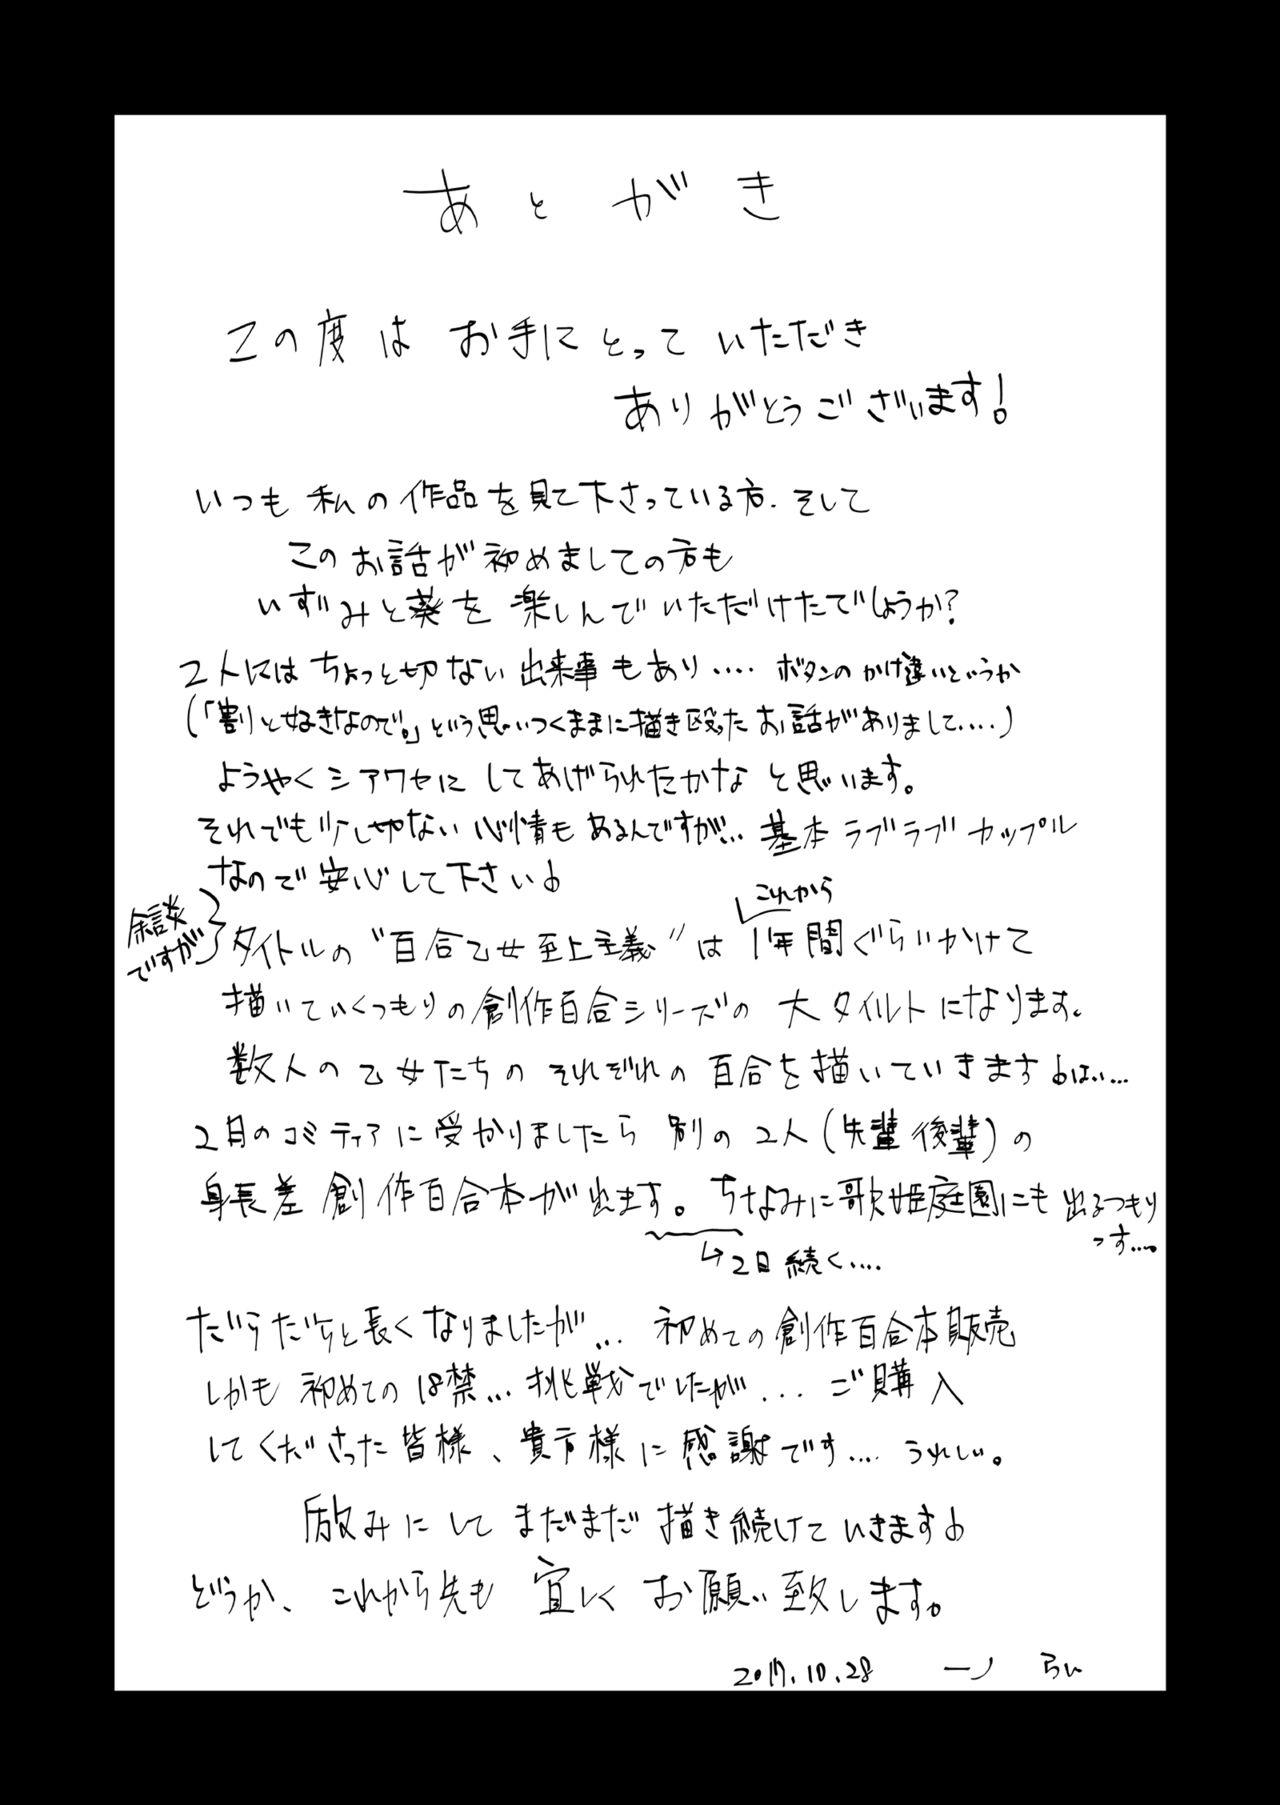 あとがき
この度は お手にとって いただき
ありがとうございます!
いつも 私の作品を見て下さっている方. そして
このお話が初めましての方も
いずみと葵を 楽しんでいただけたでしょうか?
2人には ちょっと切ない 出来事もあり.... ボタンのかけ違いというか
(「割と好きなので。」という思いつくままに描き殴ったお話がありまして....)
ようやく シアワセに してあげられたかな と思います。
それでも 少し切ない 心情も あるんですが... 基本ラブラブカップル
なので 安心して下さい♪
余談ですが
これから
タイトルの "百合乙女至上主義" は 1年間ぐらいかけて
描いていくつもりの創作百合シリーズの 大タイルトになります。
数人の 乙女たちの それぞれの 百合を描いていきます♪はい...
2月のコミティアに受かりましたら 別の2人(先輩後輩)の
身長差 創作百合本が出ます。 ちなみに歌姫庭園にも 出るつもり
っす....。
→2日続く....
だらだらと長くなりましたが... 初めての創作百合本販売
しかも 初めての18禁... 挑戦でしたが... ご購入
してくださった皆様、貴方様に感謝です.... うれしい。
励みにして まだまだ 描き続けていきます♪
どうか、これから先も 宜しく お願い致します。
2017.10.28 一ノ らい